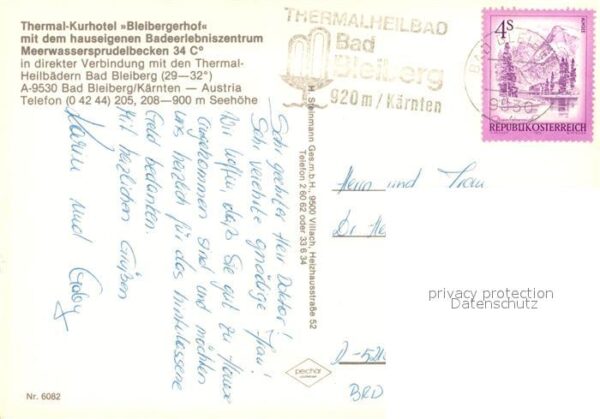 Thermal-Kurhotel »Bleibergerhof«
mit dem hauseigenen Badeerlebniszentrum
Meerwassersprudelbecken 34 C°
in direkter Verbindung mit den Thermal-
Heilbädern Bad Bleiberg (29—32°)
A-9530 Bad Bleiberg/Kärnten — Austria
Telefon (0 42 44) 205, 208—900 m Seehöhe
THERMALHEILBAD
Bad
Bleiberg
920 m / Kärnten
4S
REPUBLIK ÖSTERREICH
9530
Sehr geehrter Herr Doktor!
Sehr verehrte gnädige Frau!
Wir hoffen, daß Sie gut zu Hause
angekommen sind und möchten
uns herzlich für das hinterlassene
Geld bedanken.
Mit herzlichen Grüßen
Karin und
H. Steinmann Ges.m.b.H., 9500 Villach, Heizhausstraße 52
Telefon 2 60 62 oder 33 6 34
Herrn und Frau
Dr. He
D-52
BRD
privacy protection
Datenschutz
Nr. 6082